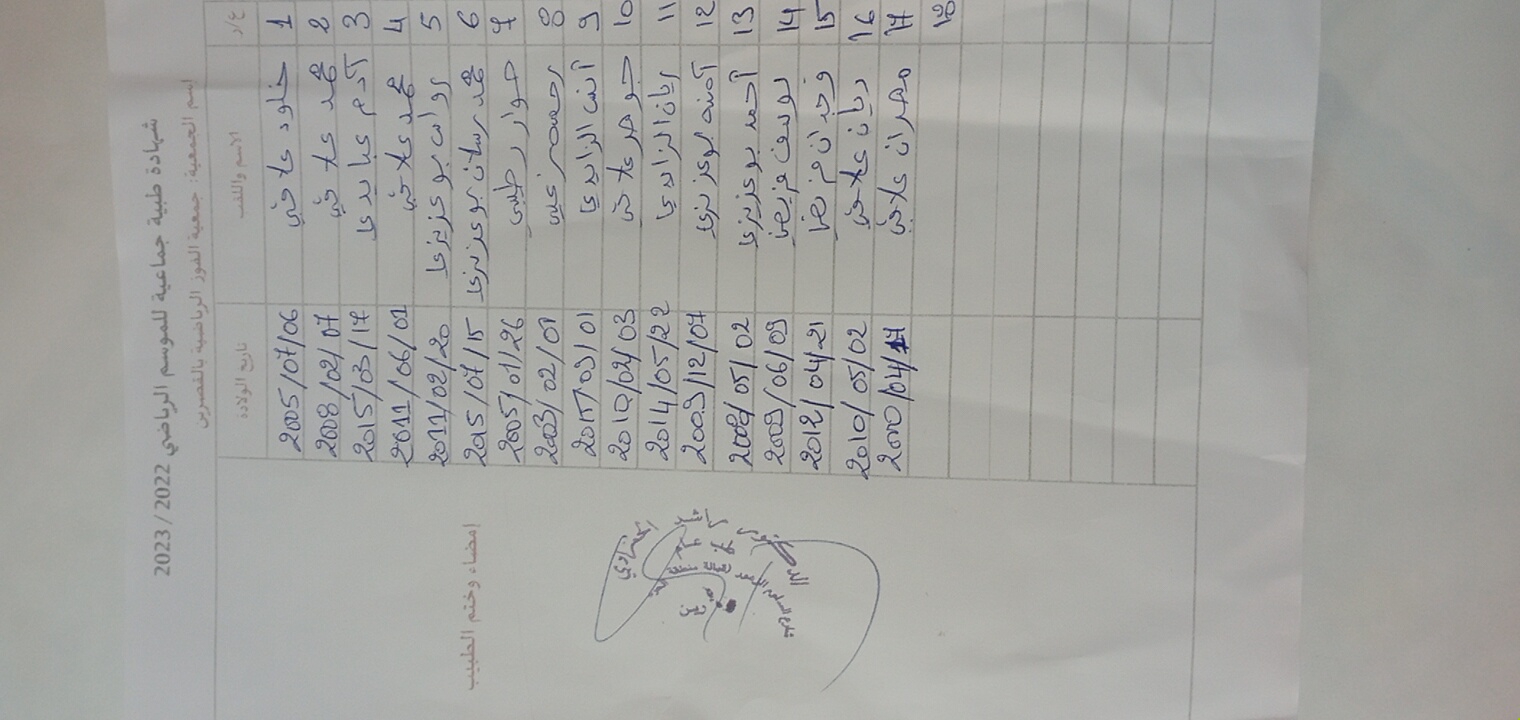 شهادة طبية جماعية للموسم الرياضي 2022 / 2023
اسم الجمعية: جمعية الفوز الرياضية بالقصرين
ع/د الاسم واللقب تاريخ الولادة
1 خلود علاقي 2005/07/06
2 محمد علاقي 2008/02/07
3 آدم عبايدي 2015/03/17
4 محمد علاقي 2011/06/01
5 روان بوعزيزي 2011/02/20
6 محمد رسلان بوعزيزي 2015/07/15
7 حوار طيبي 2005/01/26
8 2003/02/01
9 آنس الزايدي 2015/03/01
10 جوهر علاقي 2010/02/03
11 ريان الزايدي 2014/05/22
12 آمنة بوعزيزي 2009/12/07
13 أحمد بوعزيزي 2008/05/02
14 يوسف 2009/06/09
15 وجدان 2012/04/21
16 ريان علاقي 2010/05/02
17 مهران علاقي 2000/04/17
18
إمضاء وختم الطبيب